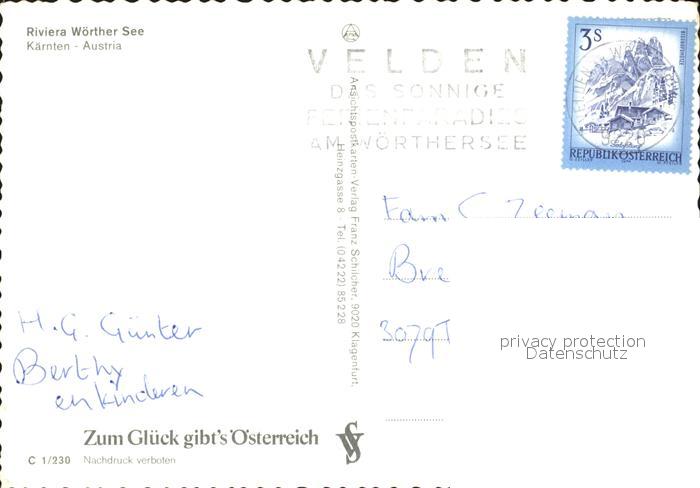 Riviera Wörther See
Kärnten - Austria
VELDEN
DAS SONNIGE
FERIENPARADIES
AM WÖRTHERSEE
3S
REPUBLIK ÖSTERREICH
Ansichtspostkarten-Verlag Franz Schilcher, 9020 Klagenfurt,
Heinzgasse 8 - Tel. (0 42 22) 85 2 28
Fam C Zeeman
Bre
3079T
privacy protection
Datenschutz
H.G. Günter
Berthy
en kinderen
Zum Glück gibt's Österreich
C 1/230 Nachdruck verboten